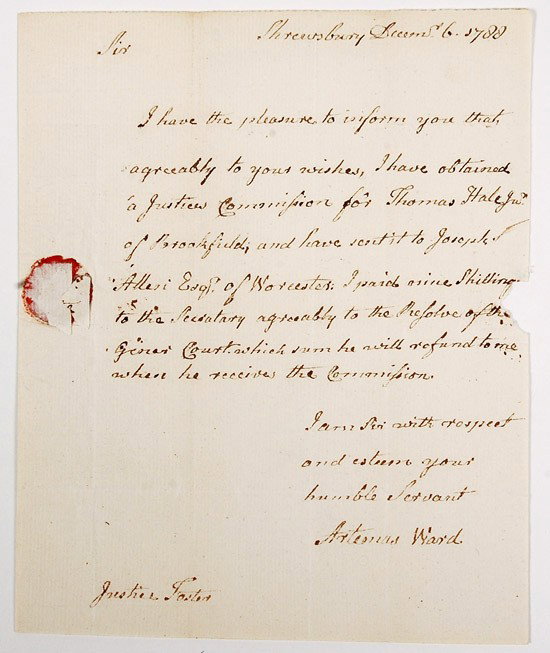 Shrewsbury Decemr. 6. 1788
Sir
I have the pleasure to inform you that,
agreeably to your wishes, I have obtained
a Justices Commission for Thomas Hale Junr
of Brookfield; and have sent it to Joseph
Allen Esqr. of Worcester. I paid nine Shillings
to the Secratary agreeably to the Resolve of the
Gener Court which sum he will refund to me
when he receives the Commission.
I am Sir with respect
and esteem your
humble Servant
Artemas Ward
Justice Foster